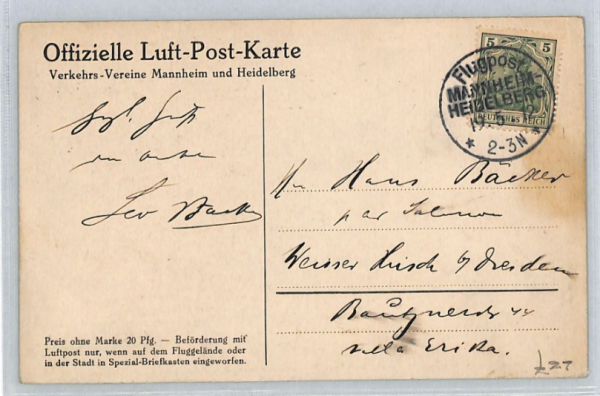 Offizielle Luft-Post-Karte
Verkehrs-Vereine Mannheim und Heidelberg
5 5
DEUTSCHES REICH
Flugpost
MANNHEIM-
HEIDELBERG
19.5
2-3N
Leo
Hans Bäcker
par
Weisser Hirsch b/ Dresden
44
Villa Erika.
Preis ohne Marke 20 Pfg. — Beförderung mit
Luftpost nur, wenn auf dem Fluggelände oder
in der Stadt in Spezial-Briefkasten eingeworfen.